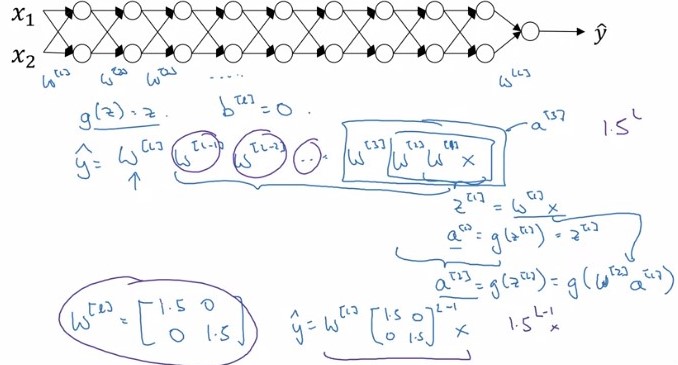 x₁
x₂
ŷ
w^[1] w^[2] w^[3] ..... w^[L]
g(z) = z. b^[l] = 0.
ŷ = w^[L] w^[L-1] w^[L-2] ... w^[3] w^[2] w^[1] x
a^[3]
1.5^L
z^[1] = w^[1] x
a^[1] = g(z^[1]) = z^[1]
a^[2] = g(z^[2]) = g(w^[2] a^[1])
w^[l] = [1.5 0
0 1.5]
ŷ = w^[L] [1.5 0
0 1.5]^L-1 x
1.5^L-1 x